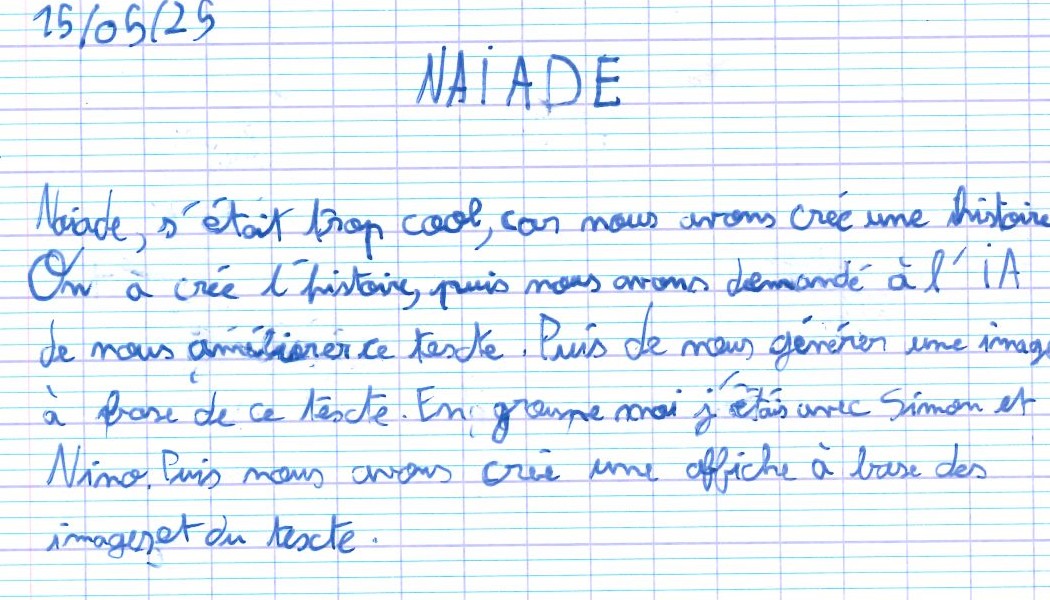 15/05/25
NAÏADE
Naiade, s'était trop cool, car nous avons créé une histoire
On à créé l'histoire, puis nous avons demandé à l'iA
de nous améliorer ce texte. Puis de nous générer une image
à base de ce texte. En groupe moi j'étais avec Simon et
Nino. Puis nous avons créé une affiche à base des
images et du texte.